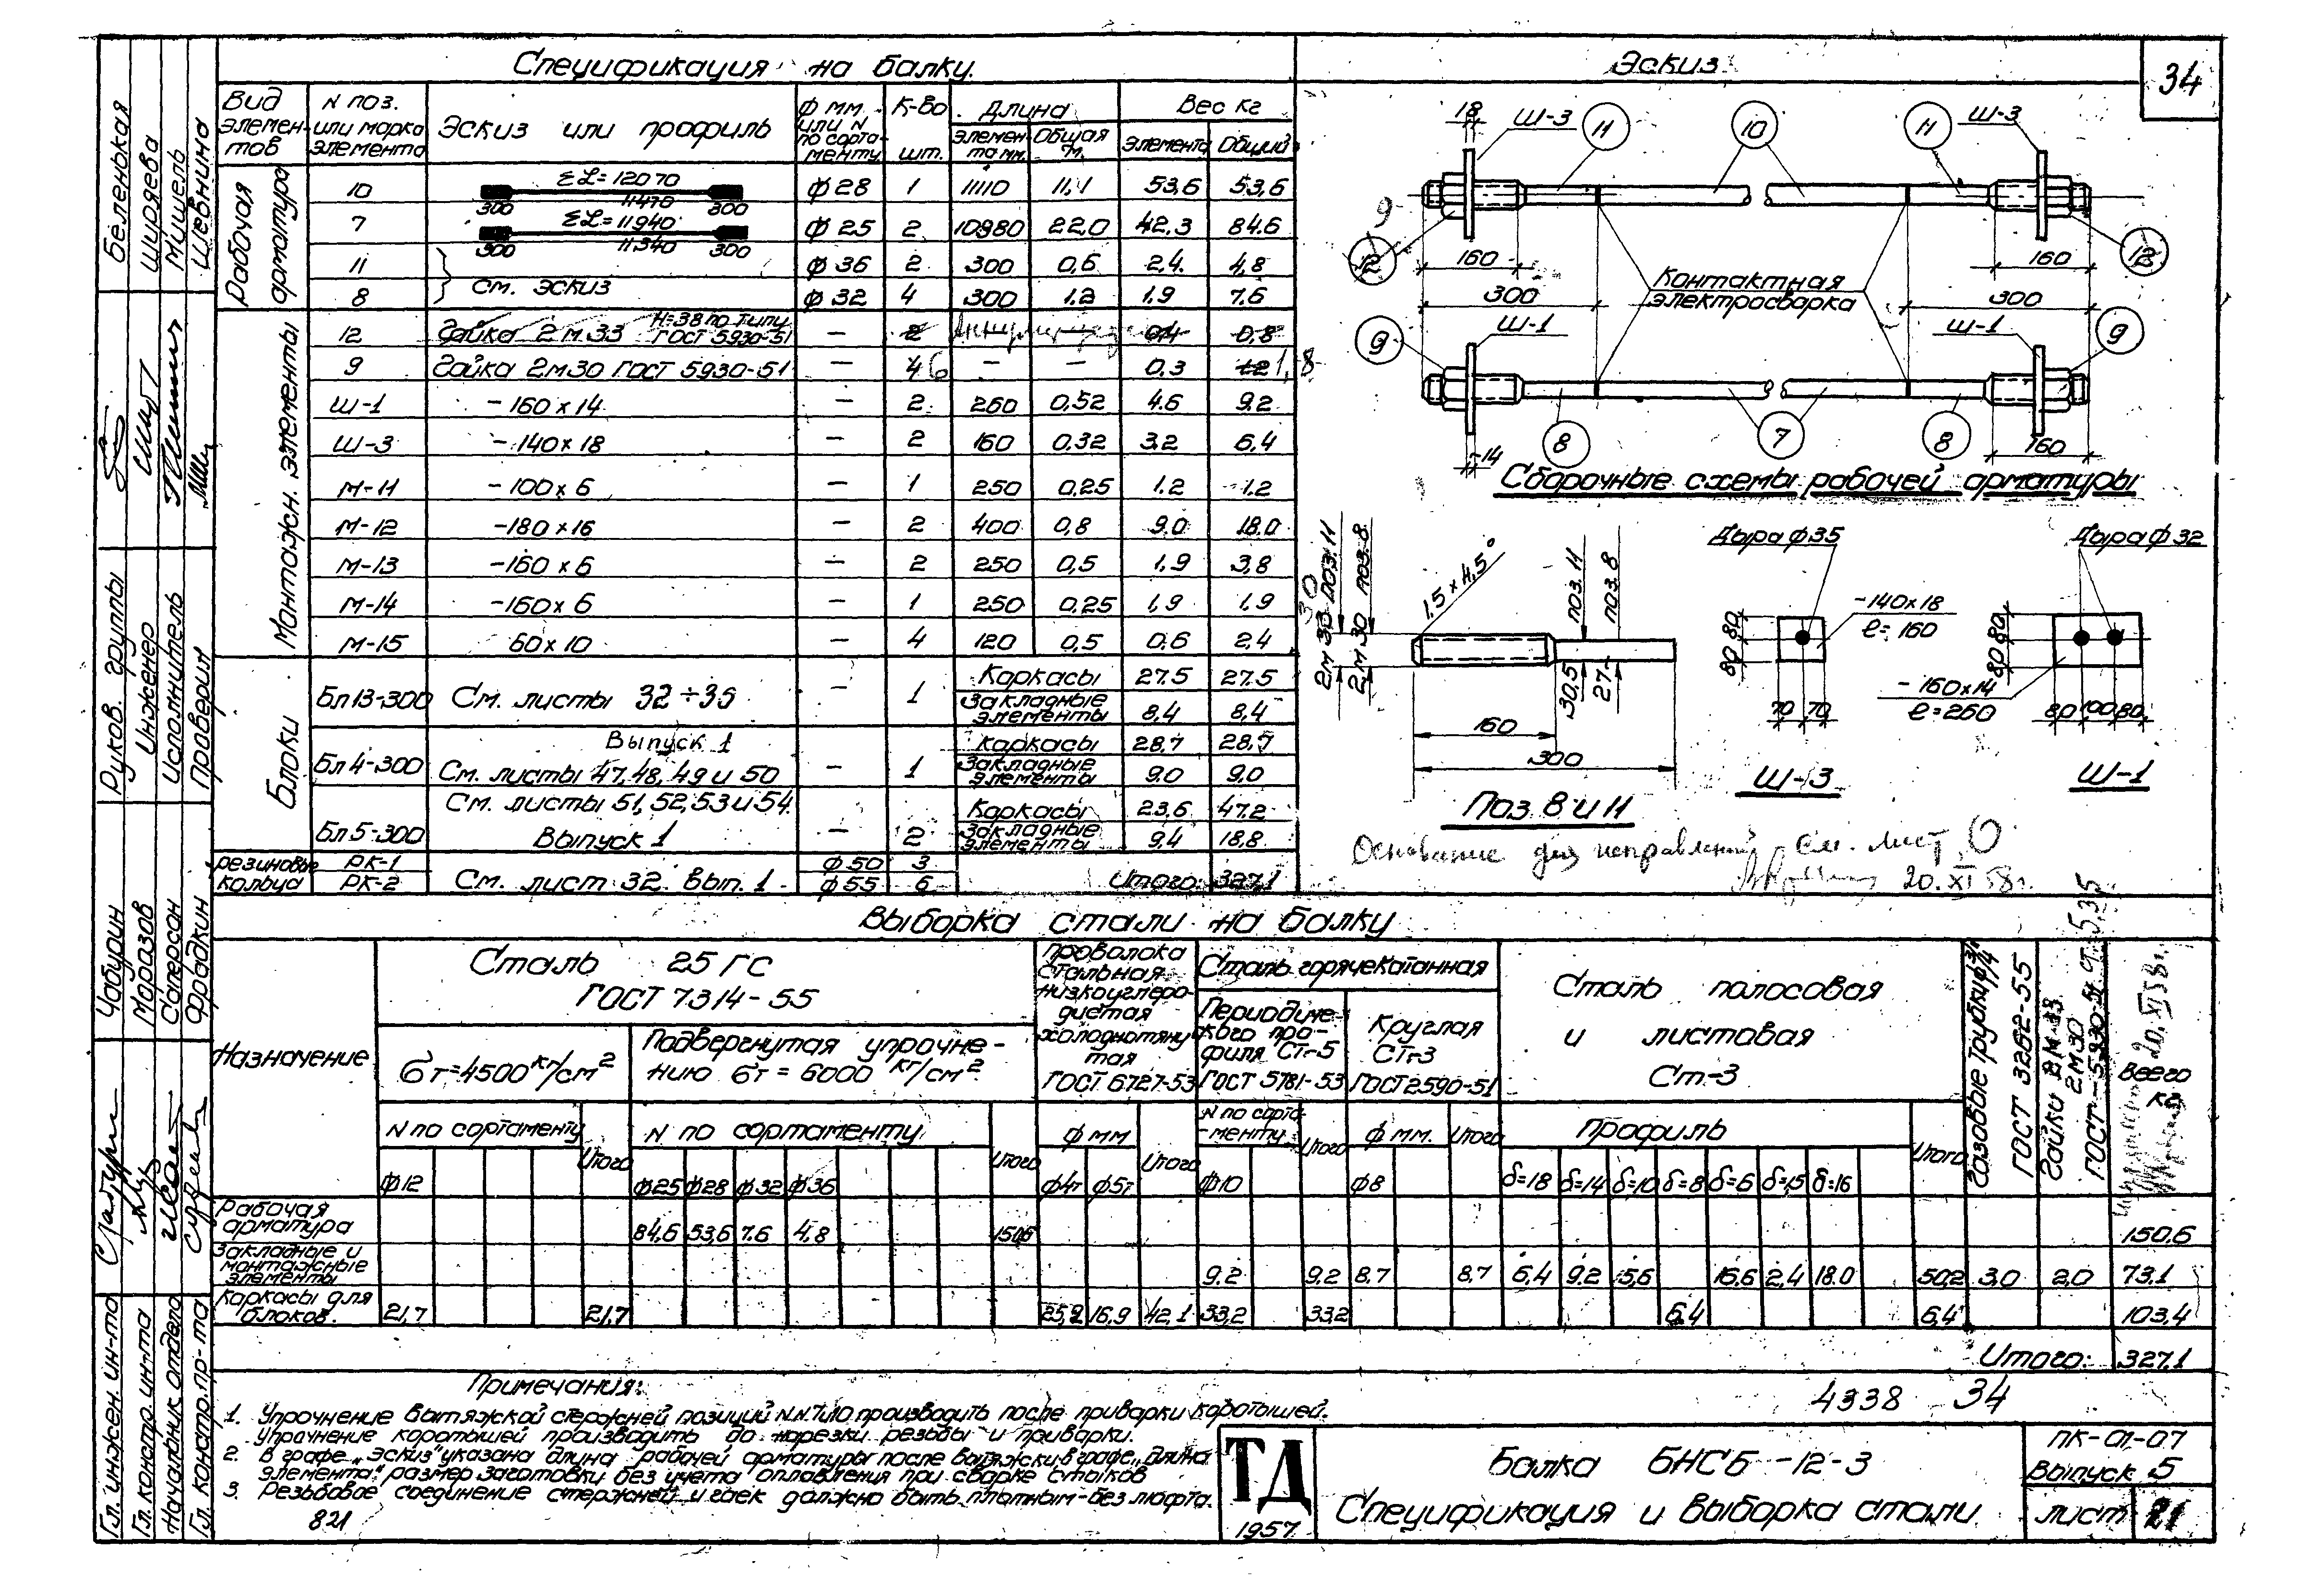 Спецификация на балку.
Эскиз
34
Вид элементов | N поз. или марка элемента | Эскиз или профиль | ф мм. или N по сортаменту | К-во шт. | Длина | Вес кг
Элемента мм. | Общая м. | Элемента | Общий
Рабочая арматура
10 | ΣL=12070 300 11470 300 | ф28 | 1 | 11110 | 11,1 | 53,6 | 53,6
7 | ΣL=11940 300 11340 300 | ф25 | 2 | 10980 | 22,0 | 42,3 | 84.6
11 | См. эскиз | ф36 | 2 | 300 | 0,6 | 2,4 | 4,8
8 | ф32 | 4 | 300 | 1.2 | 1.9 | 7.6
Монтажн. элементы
12 | Гайка 2м33 H=38 по типу ГОСТ 5930-51 | — | 2 | 0,4 | 0,8
9 | Гайка 2м30 ГОСТ 5930-51 | — | 4 6 | — | — | 0.3 | 1.2 1,8
Ш-1 | -160×14 | — | 2 | 260 | 0,52 | 4.6 | 9.2
Ш-3 | -140×18 | — | 2 | 160 | 0.32 | 3.2 | 6,4
М-11 | -100×6 | — | 1 | 250 | 0,25 | 1.2 | 1.2
М-12 | -180×16 | — | 2 | 400 | 0,8 | 9.0 | 18.0
М-13 | -160×6 | — | 2 | 250 | 0,5 | 1,9 | 3,8
М-14 | -160×6 | — | 1 | 250 | 0,25 | 1,9 | 1,9
М-15 | 60×10 | — | 4 | 120 | 0,5 | 0,6 | 2,4
Блоки
Бл13-300 | См. листы 32÷35 | — | 1 | Каркасы | 27.5 | 27.5
Закладные элементы | 8,4 | 8,4
Бл4-300 | Выпуск 1 См. листы 47,48,49 и 50 | — | 1 | Каркасы | 28,7 | 28,7
Закладные элементы | 9.0 | 9.0
Бл5-300 | См. листы 51,52,53 и 54. Выпуск 1 | — | 2 | Каркасы | 23,6 | 47.2
Закладные элементы | 9.4 | 18,8
Резиновые кольца | РК-1 | См. лист 32 вып. 1 | ф50 | 3
РК-2 | ф55 | 6 | Итого: 327,1
18 Ш-3 11 10 11 Ш-3
9
12 160 160 12
300 Контактная электросварка 300
9 Ш-1 Ш-1 9
8 7 8
14 160
Сборочные схемы рабочей арматуры
2м33 поз.11
30
2м30 поз.8
1.5×4,5°
поз.11
поз.8
30,5
27
160
300
Поз. 8 и 11
Дыра ф35
80 80
-140×18
ℓ=160
70 70
Ш-3
Дыра ф32
80 80
-160×14
ℓ=260
80 100 80
Ш-1
Основание для исправлений См. лист О
20.XI 58г.
Выборка стали на балку
Назначение
Сталь 25ГС
ГОСТ 7314-55
σт=4500 кг/см2
Подвергнутая упрочнению σт=6000 кг/см2
Проволока стальная низкоуглеродистая холоднотянутая
ГОСТ 6727-53
Сталь горячекатанная
Периодического профиля Ст-5
ГОСТ 5781-53
Круглая Ст-3
ГОСТ 2590-51
Сталь полосовая
и листовая
Ст-3
ГОСТ 3262-55
Гайки 2М33
2М30
ГОСТ-5930-51
Всего кг
N по сортаменту | Итого | N по сортаменту | Итого | ф мм | Итого | N по сортаменту | Итого | ф мм. | Итого | Профиль | Итого
ф12 | ф25 | ф28 | ф32 | ф36 | ф4т | ф5т | ф10 | ф8 | δ=18 | δ=14 | δ=10 | δ=8 | δ=6 | δ=15 | δ=16
Рабочая арматура | 84,6 | 53,6 | 7.6 | 4,8 | 150,6 | 150.6
Закладные и монтажные элементы | 9.2 | 9,2 | 8.7 | 8.7 | 6,4 | 9.2 | 5,6 | 16,6 | 2,4 | 18.0 | 50,2 | 3,0 | 2,0 | 73.1
Каркасы для блоков. | 21,7 | 21,7 | 25,2 | 16,9 | 42,1 | 33,2 | 33,2 | 6.4 | 6,4 | 103,4
Итого: 327.1
Примечания:
1. Упрочнение вытяжкой стержней позиций N.N. 7 и 10 производить после приварки коротышей.
Упрочнение коротышей производить до нарезки резьбы и приварки.
2. В графе „Эскиз" указана длина рабочей арматуры после вытяжки, в графе „Длина
элемента" размер заготовки без учета оплавления при сварке стыков
3. Резьбовое соединение стержней и гаек должно быть плотным - без люфта.
821
4338 34
ТД
1957
Балка БНСБ-12-3
Спецификация и выборка стали
ПК-01-07
Выпуск 5
лист 21
Гл. инжен. ин-та Чабурин
Гл. констр. ин-та Моразов
Начальник отдела Сатерсон
Гл. констр. пр-та Фрадкин
Руков. группы Беленькая
Инженер Ширяева
Исполнитель Мишель
Проверил Шевнина